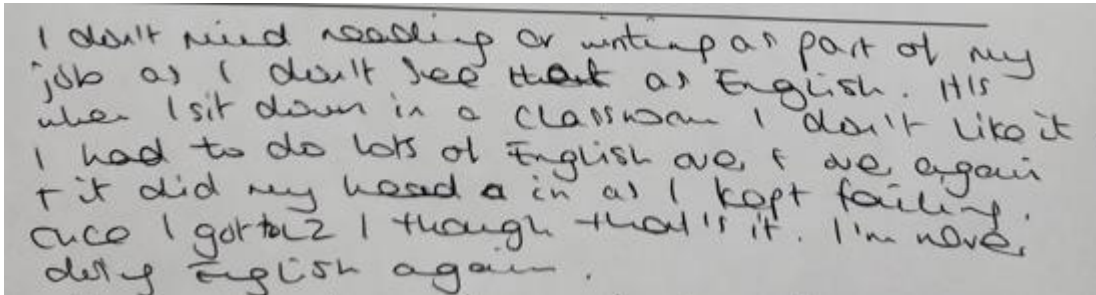 I don't mind reading or writing as part of my
job as I don't see that as English. It's
when I sit down in a classroom I don't like it
I had to do lots of English over & over again
+ it did my head in as I kept failing.
once I got to L2 I though that's it. I'm never
doing English again.